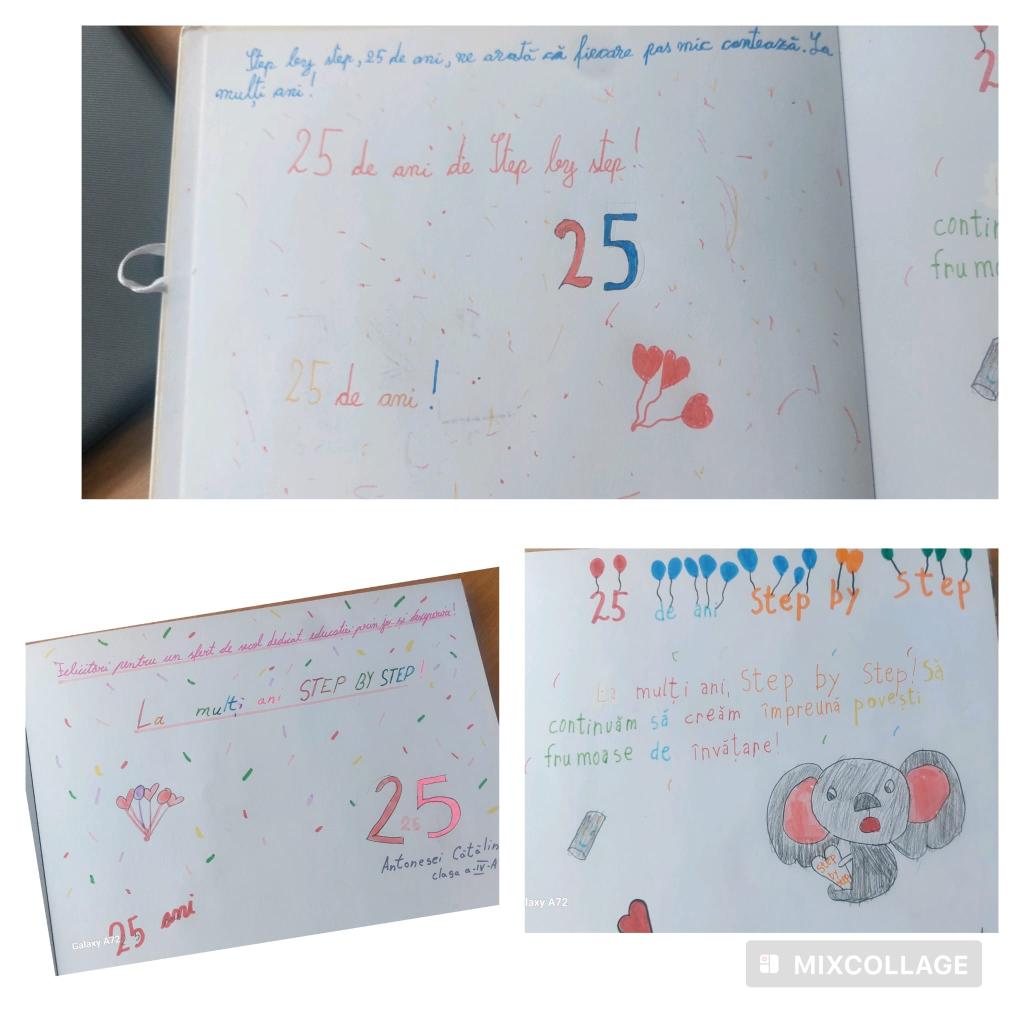 Step by step, 25 de ani, ne arată că fiecare pas mic contează. La
mulți ani!
25 de ani de Step by step!
25
25 de ani!
2
contin
frumo
Felicitări pentru un sfert de secol dedicat educației prin joc și descoperire!
La mulți ani STEP BY STEP!
25
25
Antonesei Cătălin
clasa a-IV-A
25 ani
Galaxy A72
25 de ani Step by Step
La mulți ani, Step by Step! Să
continuăm să creăm împreună povești
frumoase de învățare!
Step
by
Step
laxy A72
MIXCOLLAGE